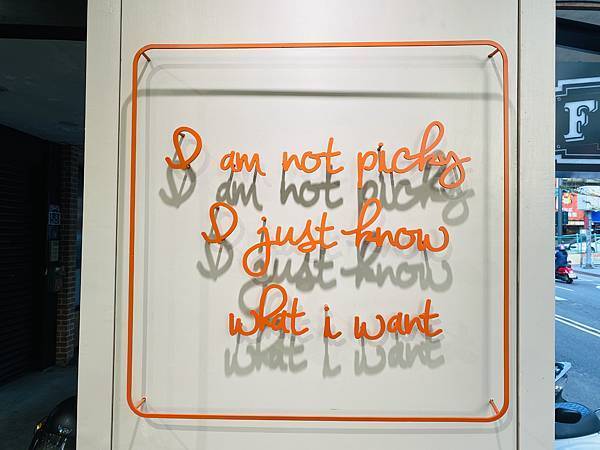 I am not picky
I just know
what i want
F